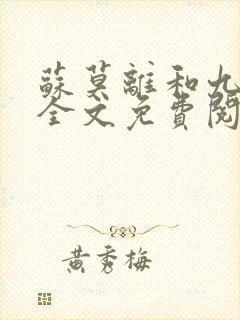 蘇莫離和九
全文免費閱
黃秀梅